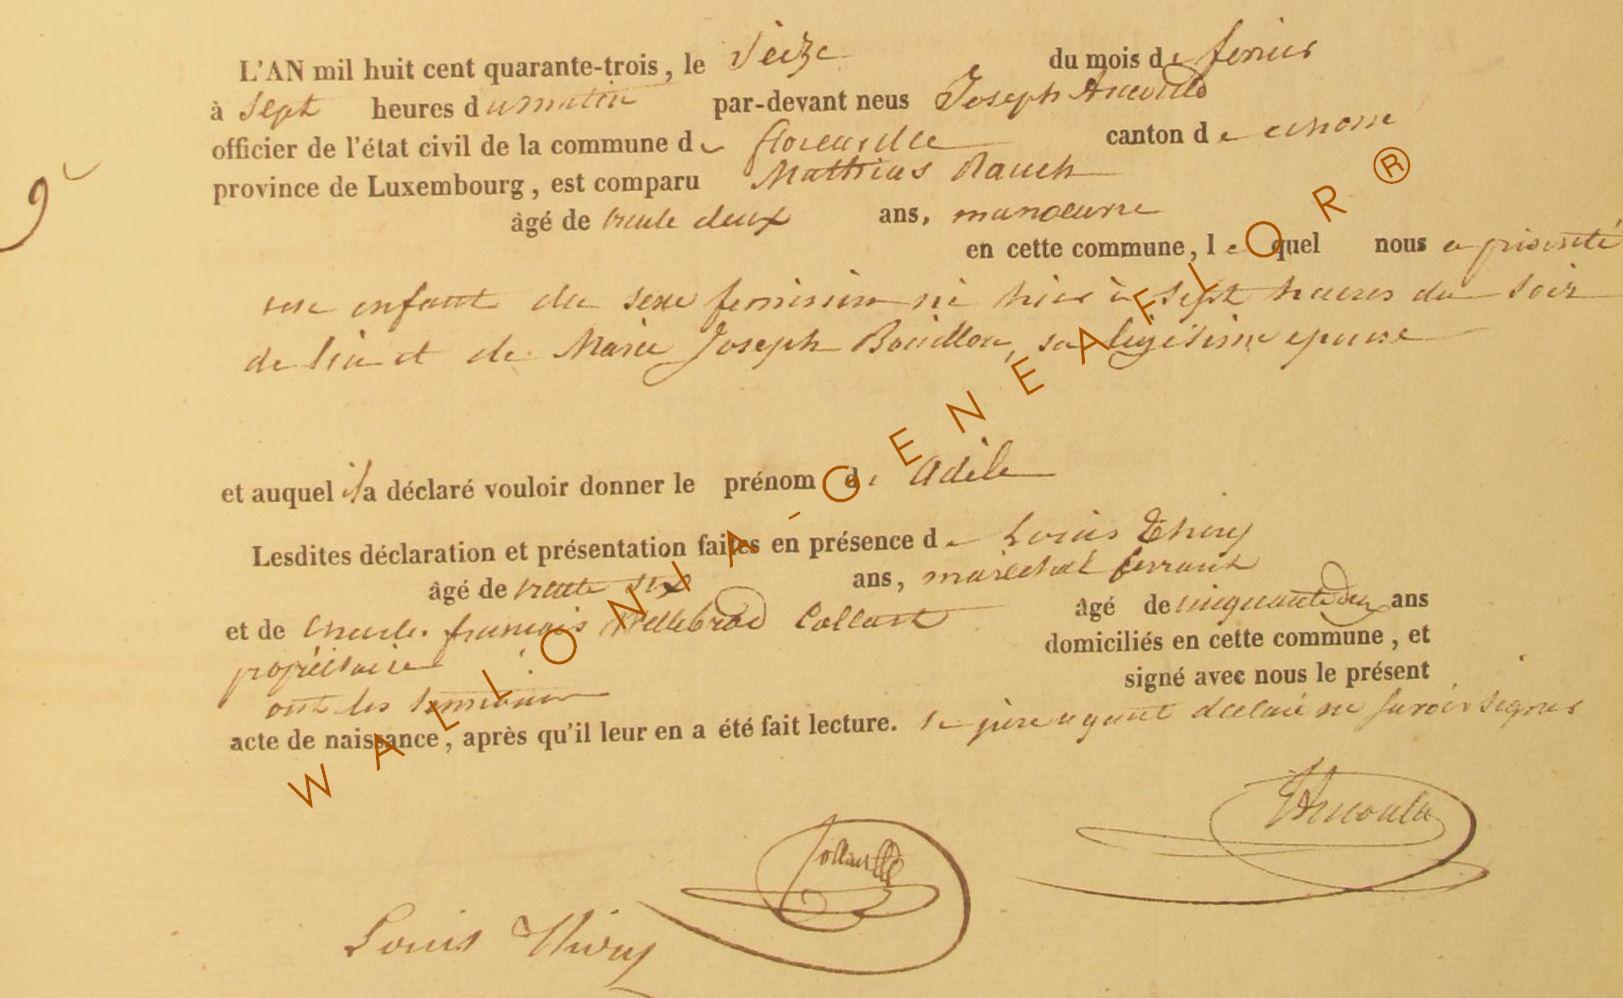 L'AN mil huit cent quarante-trois, le Seize du mois de fevrier
à Sept heures du matin par-devant nous Joseph
officier de l'état civil de la commune de florenville canton de
province de Luxembourg, est comparu Mathias Rauch
9
âgé de trente deux ans, manoeuvre
en cette commune, lequel nous a présenté
une enfant du sexe feminin né hier à sept heures du soir
de lui et de Marie Joseph Bouillon, sa legitime epouse
et auquel il a déclaré vouloir donner le prénom de Adèle
Lesdites déclaration et présentation faites en présence de Louis Thiry
âgé de trente six ans, maréchal ferrant
et de Charles françois Collart âgé de cinquante deux ans
propriétaire domiciliés en cette commune, et
ont les temoins signé avec nous le présent
acte de naissance, après qu'il leur en a été fait lecture. le père ayant déclaré ne savoir signer
Louis Thiry
WALLONIA-GENEAFLOR®